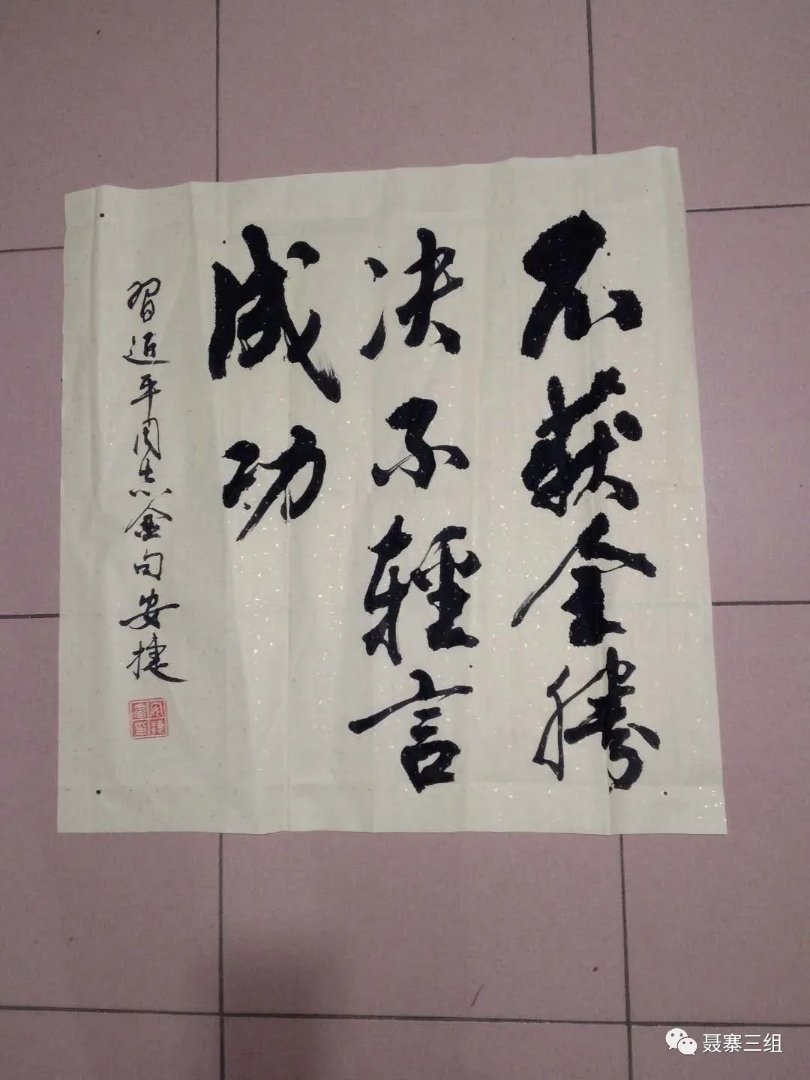 不获全勝
决不轻言
成功
習近平同志金句安捷
聂寨三组